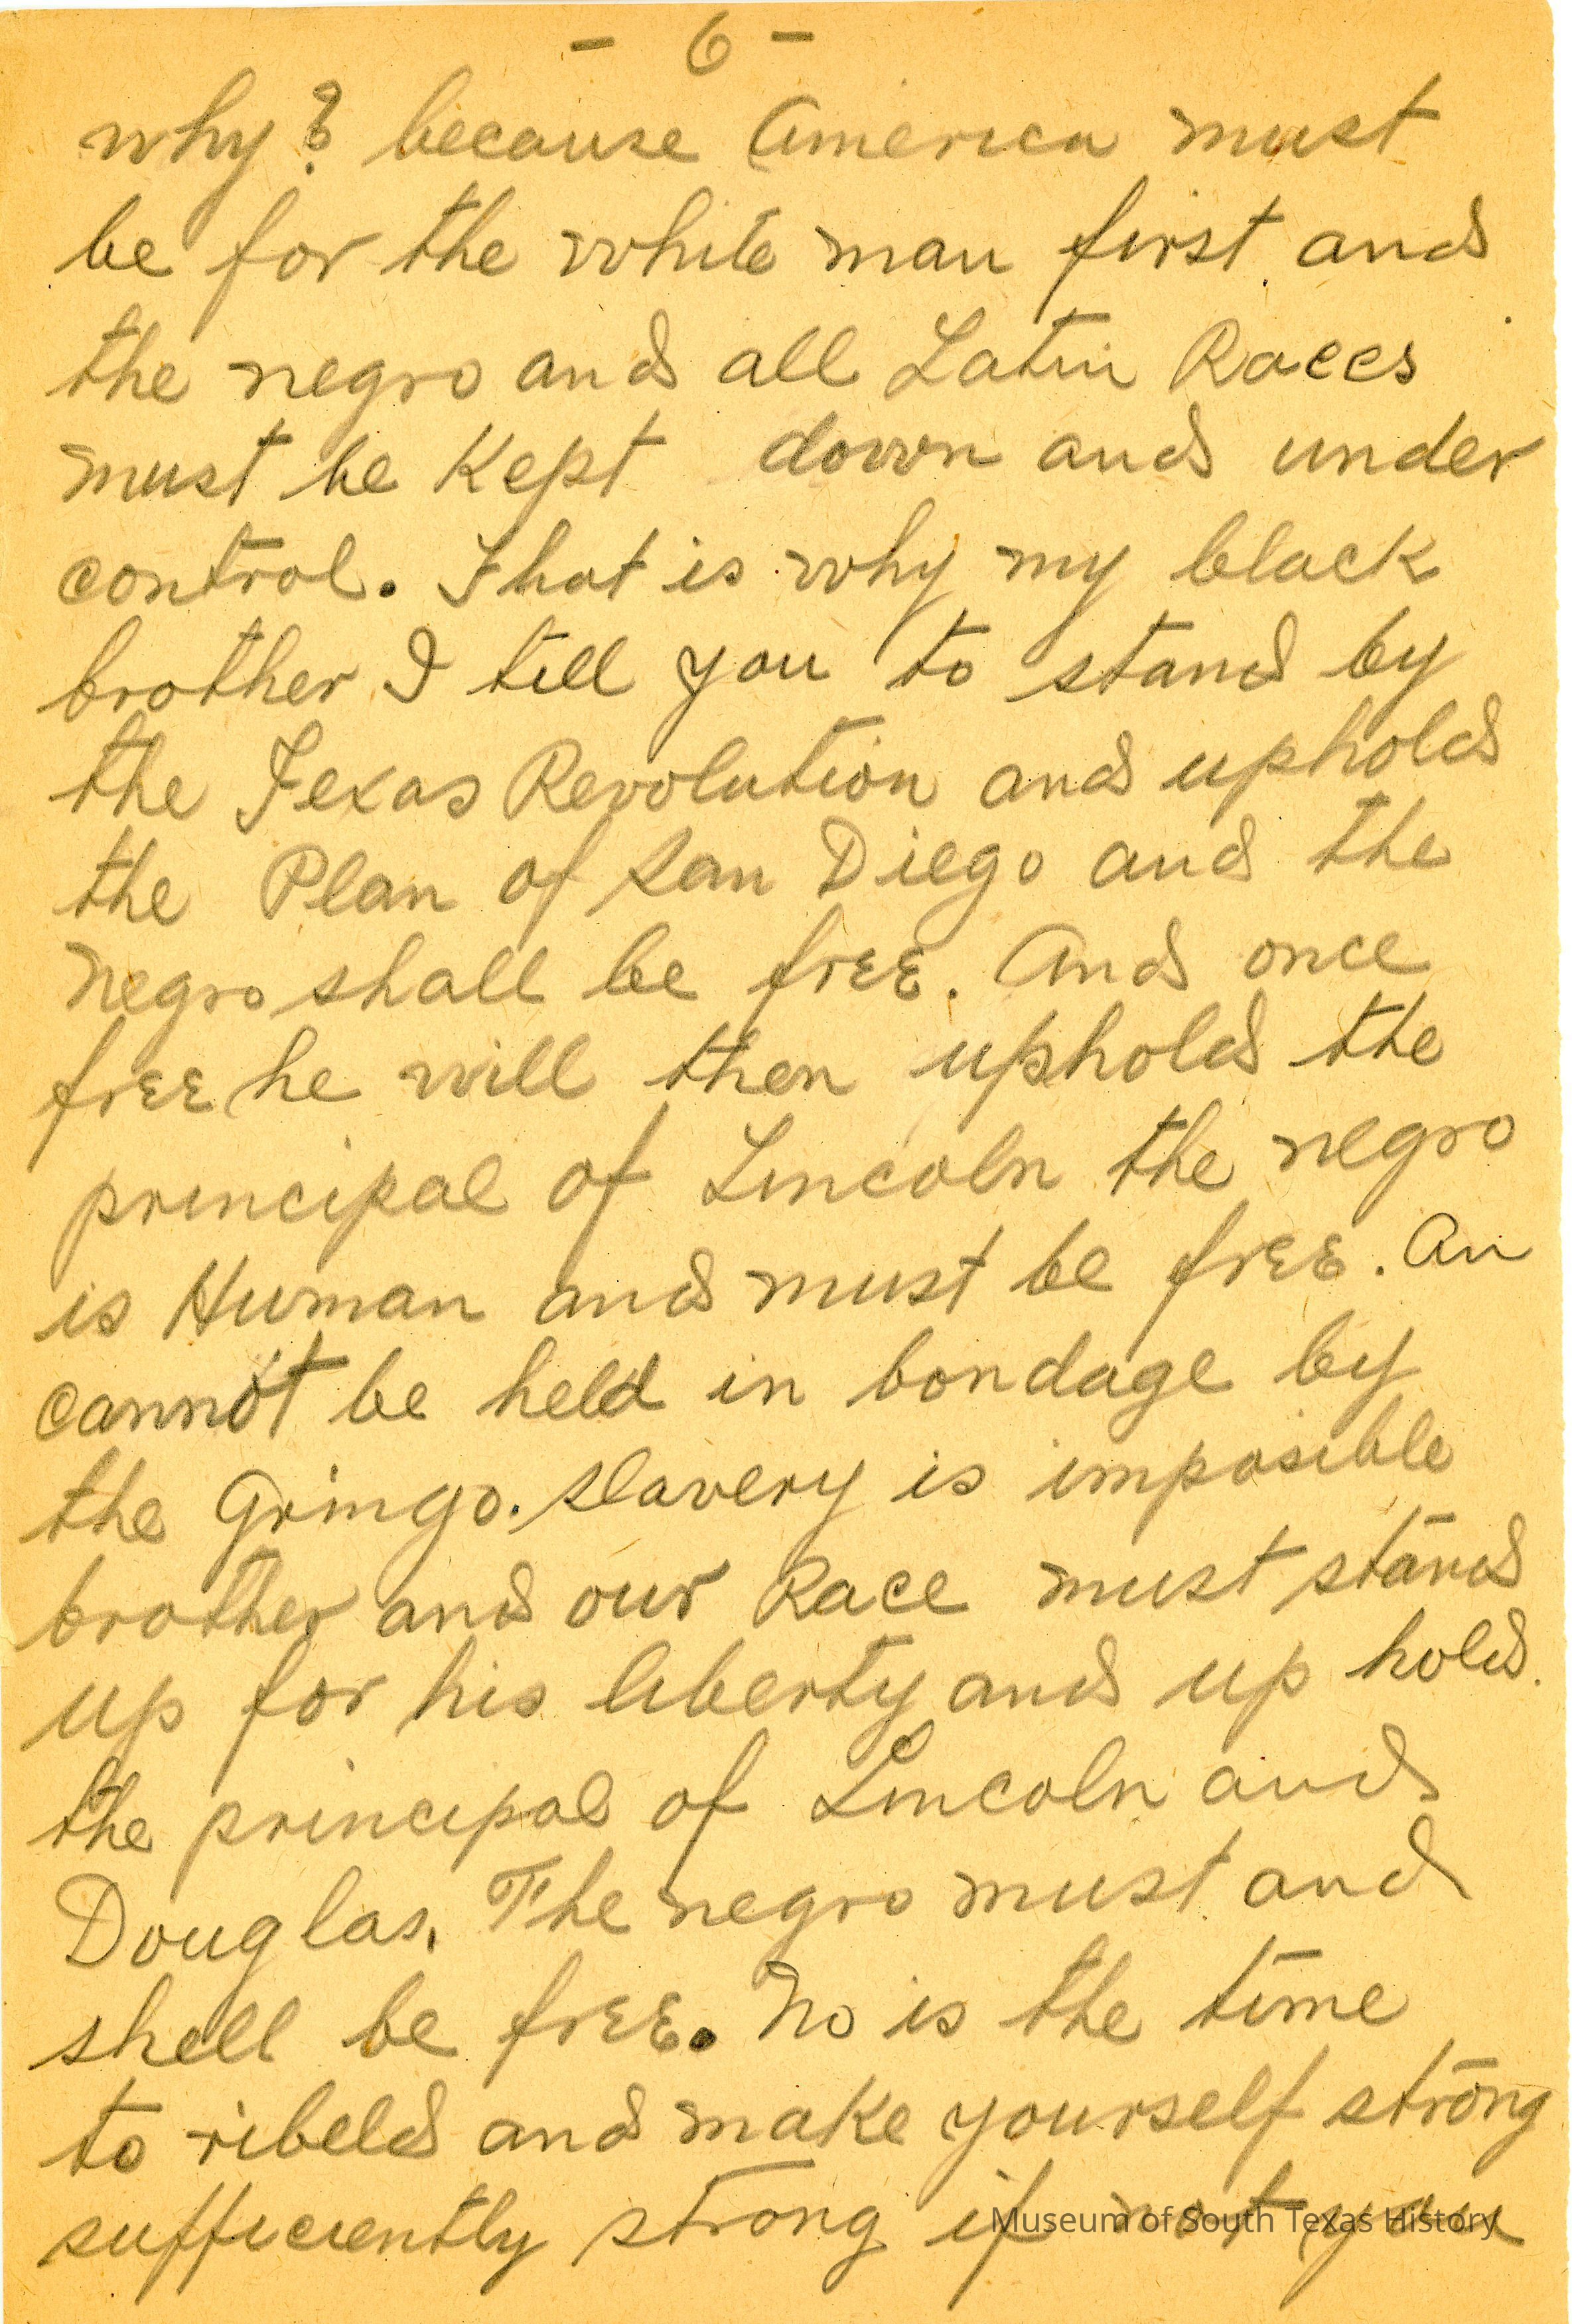 - 6 -
why? because America must
be for the white man first and
the negro and all Latin Races
must be Kept down and under
control. That is why my black
brother I till you to stand by
the Texas Revolution and uphold
the Plan of San Diego and the
negro shall be free. And once
free he will then uphold the
principal of Lincoln the negro
is Human and must be free. An
cannot be held in bondage by
the Gringo. slavery is imposible
brother and our Race must stand
up for his liberty and up hold.
the principal of Lincoln and
Douglas. The negro must and
shell be free. No is the time
to ribeld and make yourself strong
sufficiently strong if not you
Museum of South Texas History